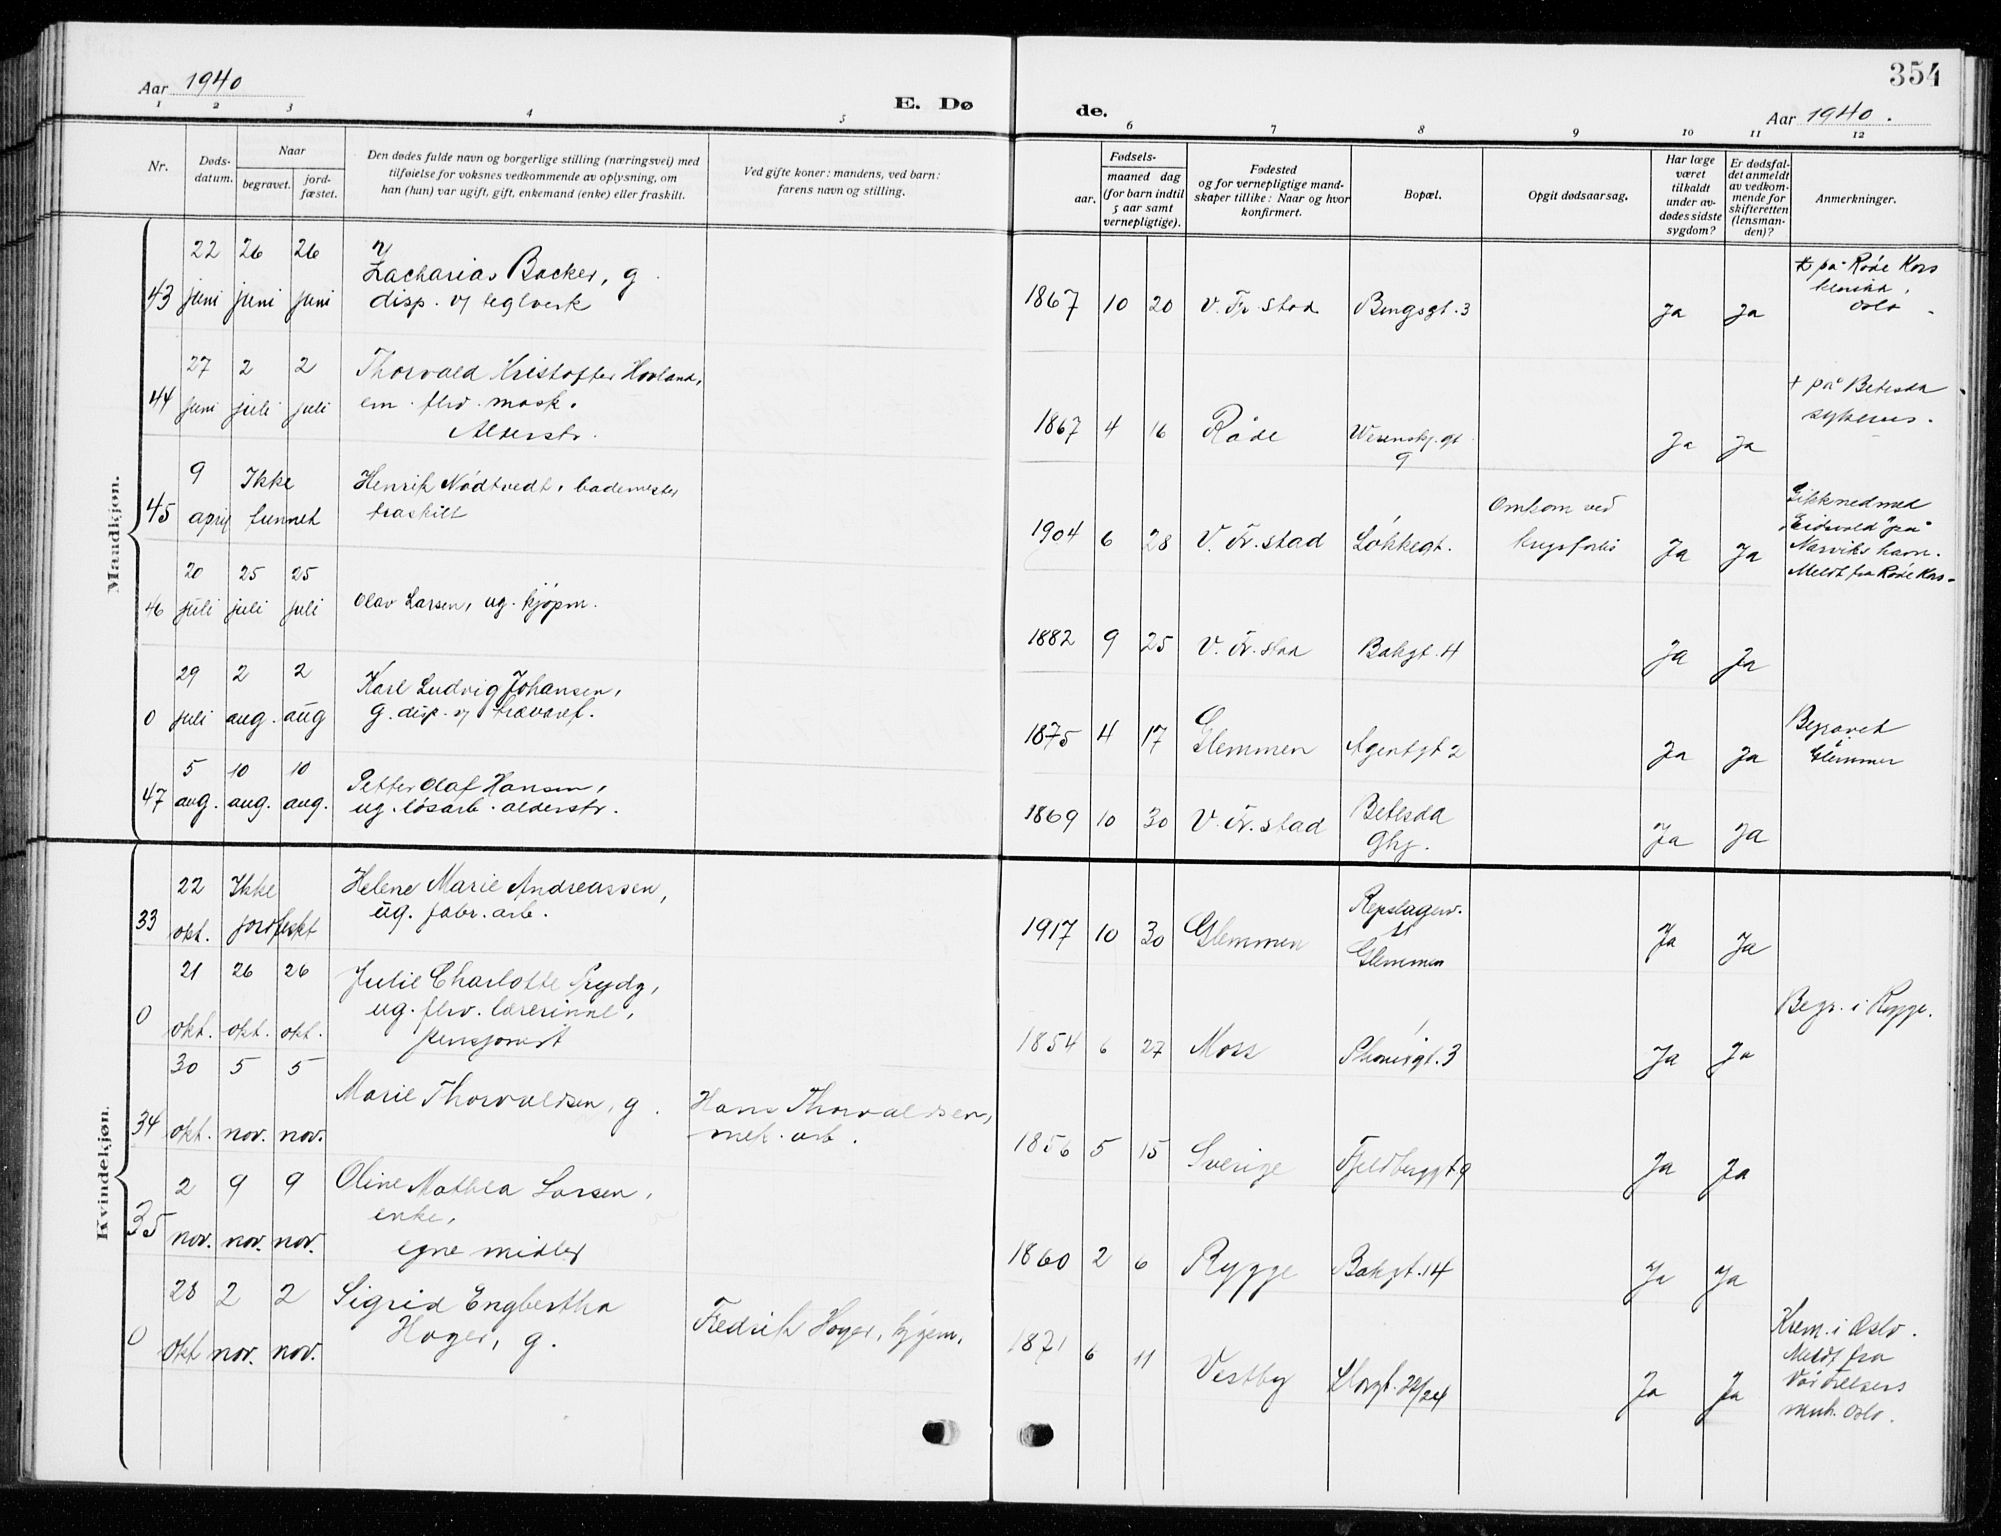 Aar 1940
E. Dø
de.
354
Aar 1940.
1 2 3 4 5 6 7 8 9 10 11 12
Nr.
Døds-
datum.
Naar
begravet.
jord-
fæstet.
Den dødes fulde navn og borgerlige stilling (næringsvei) med
tilføielse for voksnes vedkommende av oplysning, om
han (hun) var ugift, gift, enkemand (enke) eller fraskilt.
Ved gifte koner: mandens, ved barn:
farens navn og stilling.
Fødsels-
aar.
maaned dag
(for barn indtil
5 aar samt
vernepligtige).
Fødested
og for vernepligtige mand-
skaper tillike: Naar og hvor
konfirmert.
Bopæl.
Opgit dødsaarsag.
Har læge
været
tilkaldt
under av-
dødes sidste
sygdom?
Er dødsfal-
det anmeldt
av vedkom-
mende for
skifteretten
(lensman-
den)?
Anmerkninger.
Mandkjøn.
43
22 26 26
juni juni juni
Zacharias Backer, g.
disp. v/ teglverk
1867 10 20 V. Fr.stad
Bengsgt. 3
Ja Ja
† på Røde Kors
klinikk,
Oslo.
44
27 2 2
juni juli juli
Thorvald Kristoffer Hovland,
em. fhv. mask.
Alderstr.
1867 4 16 Råde
9
Ja Ja
† på Betesda
sykehus.
45
9 Ikke
april funnet
Henrik Nødtvedt, bademester
fraskilt
1904 6 28 V. Fr.stad Løkkegt.
Omkom ved
krigsforlis
Ja Ja
Gikk ned med
"Eidsvold" på
Narviks havn.
Meldt fra Røde Kors.
46
20 25 25
juli juli juli
Olav Larsen, ug. kjøpm.
1882 9 25 V. Fr.stad Bakgt. 4
Ja Ja
0
29 2 2
juli aug. aug
Karl Ludvig Johansen,
g. disp. v/ trævaref.
1875 4 17 Glemmen Agentgt 2
Ja Ja
Begravet
i
Glemmen
47
5 10 10
aug. aug. aug.
Petter Olaf Hansen,
ug. løsarb. alderstr.
1869 10 30 V. Fr.stad
Betesda
Ghj.
Ja Ja
Kvindekjøn.
33
22 Ikke
okt. jordfestet
Helene Marie Andreassen,
ug. fabr. arb.
1917 10 30 Glemmen
Repslagerv.
Glemmen
Ja Ja
0
21 26 26
okt. okt. okt.
Julie Charlotte Prydz,
ug. fhv. lærerinne,
pensjonist
1854 6 27 Moss Phønixgt. 3
Ja Ja
Begr. i Rygge.
34
30 5 5
okt. nov. nov.
Marie Thorvaldsen, g.
Hans Thorvaldsen,
mek. arb.
1856 5 15 Sverige Fjeldberggt 9
Ja Ja
35
2 9 9
nov. nov. nov.
Oline Mathea Larsen,
enke,
egne midler
1860 2 6 Rygge Bakgt. 14
Ja Ja
0
28 2 2
okt nov. nov.
Sigrid Engbertha
Høyer, g.
Fredrik Høyer, kjøpm.
1871 6 11 Vestby Storgt. 22/24
Ja Ja
Krem. i Oslo.
Meldt fra
Vår Frelsers
menh. Oslo.